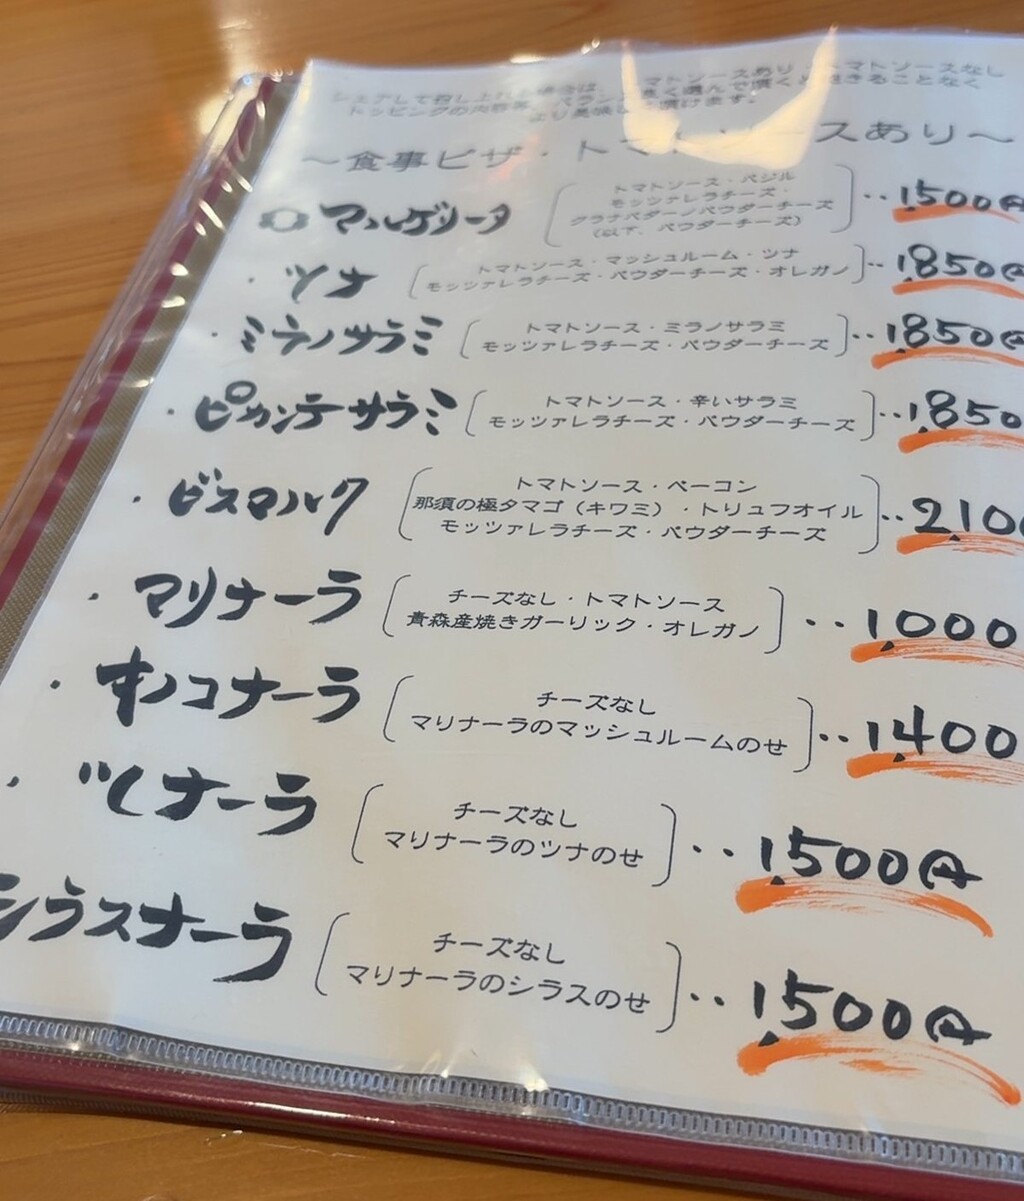 トマトソースあり トマトソースなし
より美味しく頂けます。
～食事ピザ・トマトソースあり～
マルゲリータ トマトソース・バジル ・・1,500円
モッツァレラチーズ・
グラナパダーノパウダーチーズ
(以下、パウダーチーズ)
・ツナ トマトソース・マッシュルーム・ツナ ・・1,850円
モッツァレラチーズ・パウダーチーズ・オレガノ
・ミラノサラミ トマトソース・ミラノサラミ ・・1,850円
モッツァレラチーズ・パウダーチーズ
・ピカンテサラミ トマトソース・辛いサラミ ・・1,850
モッツァレラチーズ・パウダーチーズ
・ビスマルク トマトソース・ベーコン ・・2,100
那須の極タマゴ(キワミ)・トリュフオイル
モッツァレラチーズ・パウダーチーズ
・マリナーラ チーズなし・トマトソース ・・1,000
青森産焼きガーリック・オレガノ
・キノコナーラ チーズなし ・・1,400
マリナーラのマッシュルームのせ
・ツナーラ チーズなし ・・1,500円
マリナーラのツナのせ
シラスナーラ チーズなし ・・1,500円
マリナーラのシラスのせ